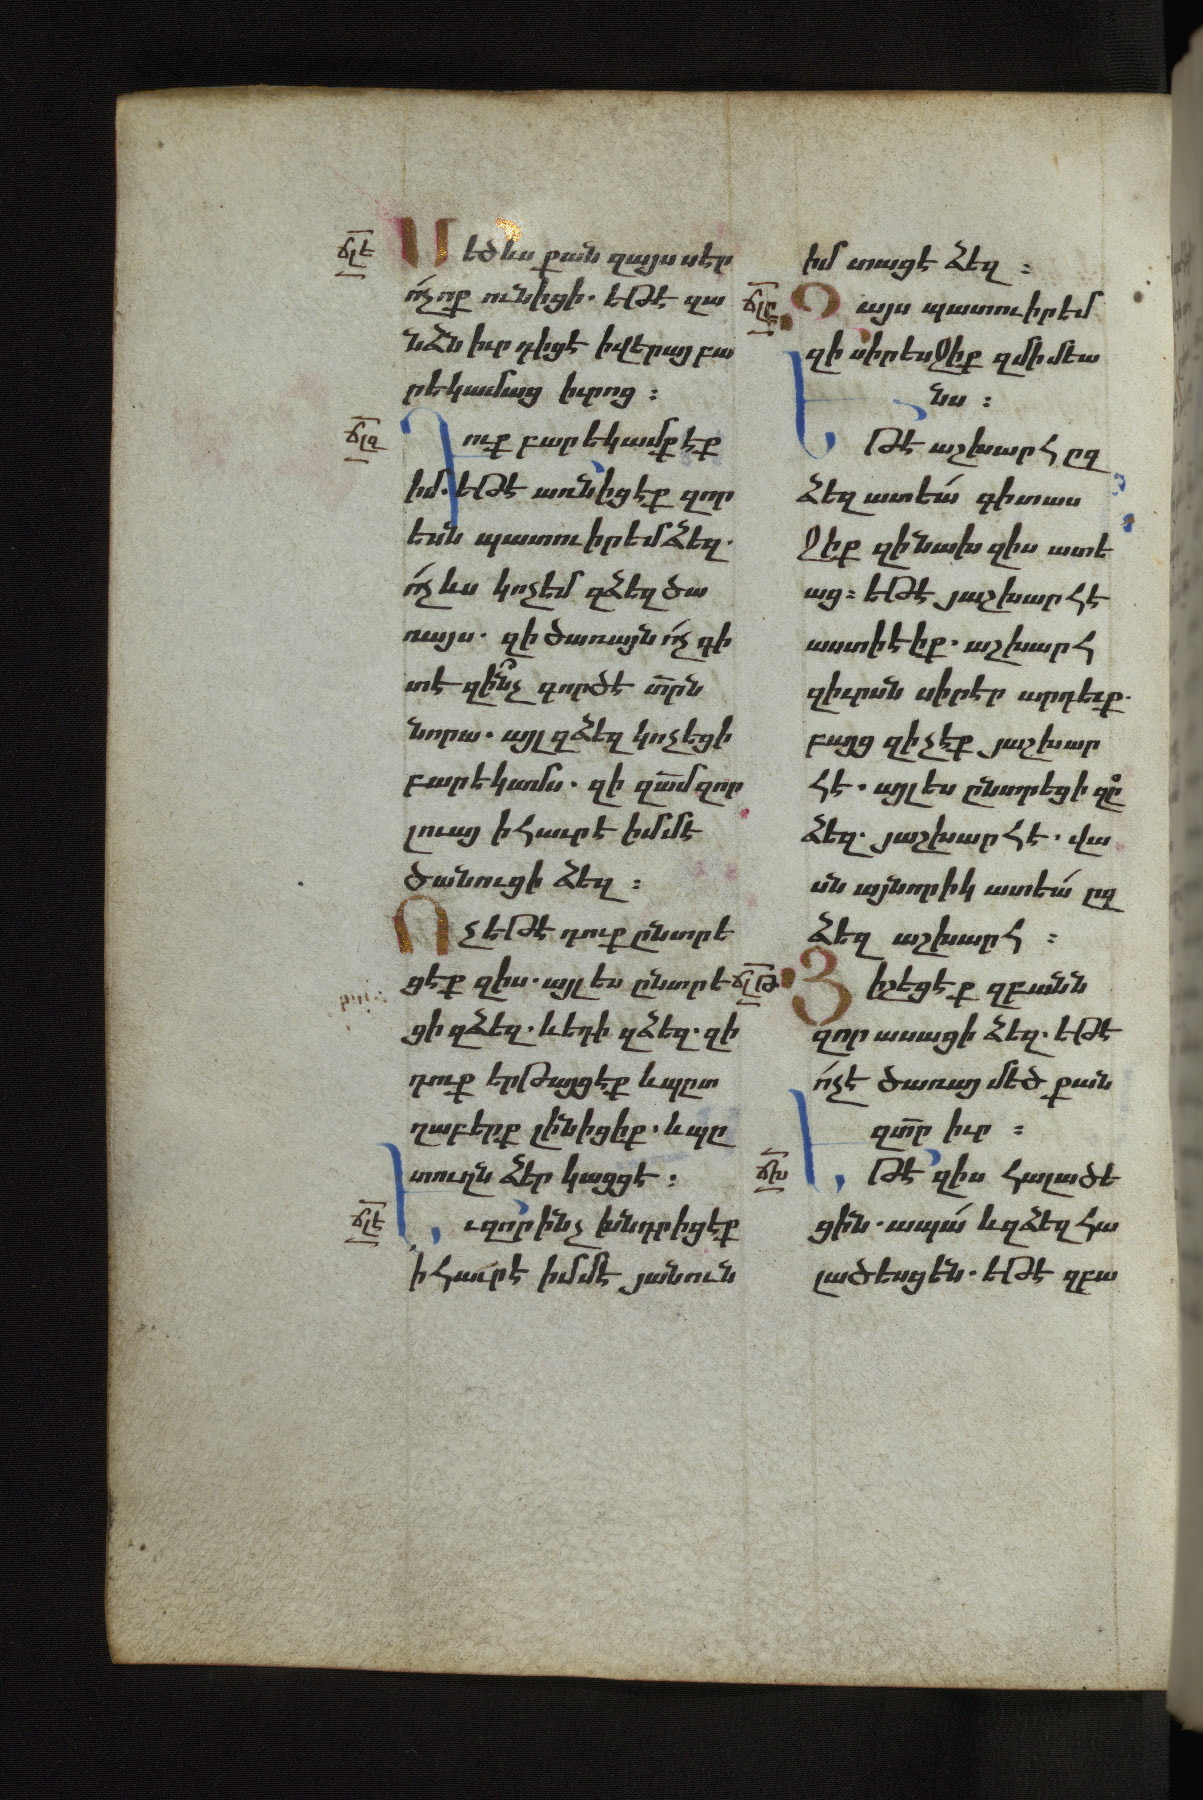 ճլե
Մեծ ևս քան զայս սէր
ո՛չ ոք ունիցի. եթէ զա
նձն իւր դիցէ ի վերայ բա
րեկամաց իւրոց :
ճլզ
Դուք բարեկամք էք
իմ. եթէ առնիցէք զոր
ես պատուիրեմ ձեզ.
ո՛չ ևս կոչեմ զձեզ ծա
ռայս. զի ծառայն ո՛չ գի
տէ զինչ գործէ տրն
նորա. այլ զձեզ կոչեցի
բարեկամս. զի զամ զոր
լուայ ի հաւրէ իմմէ
ծանուցի ձեզ :
Ոչ եթէ դուք ընտրե
ցէք զիս. այլ ես ընտրե
ցի զձեզ. և եդի զձեզ. զի
դուք երթայցէք և պըտ
ղաբերք լինիցիք. և պը
տուղն ձեր կացցէ :
ճլէ
Եւ զոր ինչ խնդրիցէք
ի հաւրէ իմմէ յանուն
իմ տացէ ձեզ :
ճլը
Զայս պատուիրեմ
զի սիրեսջիք զմիմեա
նս :
Եթէ աշխարհ ըզ
ձեզ ատեա՛ գիտաս
ջիք զի նախ զիս ատե
աց : եթէ յաշխարհէ
աստի էիք. աշխարհ
զիւրսն սիրէր արդեւք.
բայց զի չէք յաշխար
հէ. այլ ես ընտրեցի զը
ձեզ. յաշխարհէ. վա
սն այնորիկ ատեա՛ ըզ
ձեզ աշխարհ :
ճլթ
Յիշեցէք զբանն
զոր ասացի ձեզ. եթէ
ո՛չ է ծառայ մեծ քան
զտր իւր :
ճխ
Եթէ զիս հալածե
ցին. ապա՛ և զձեզ հա
լածեսցեն. եթէ զբա